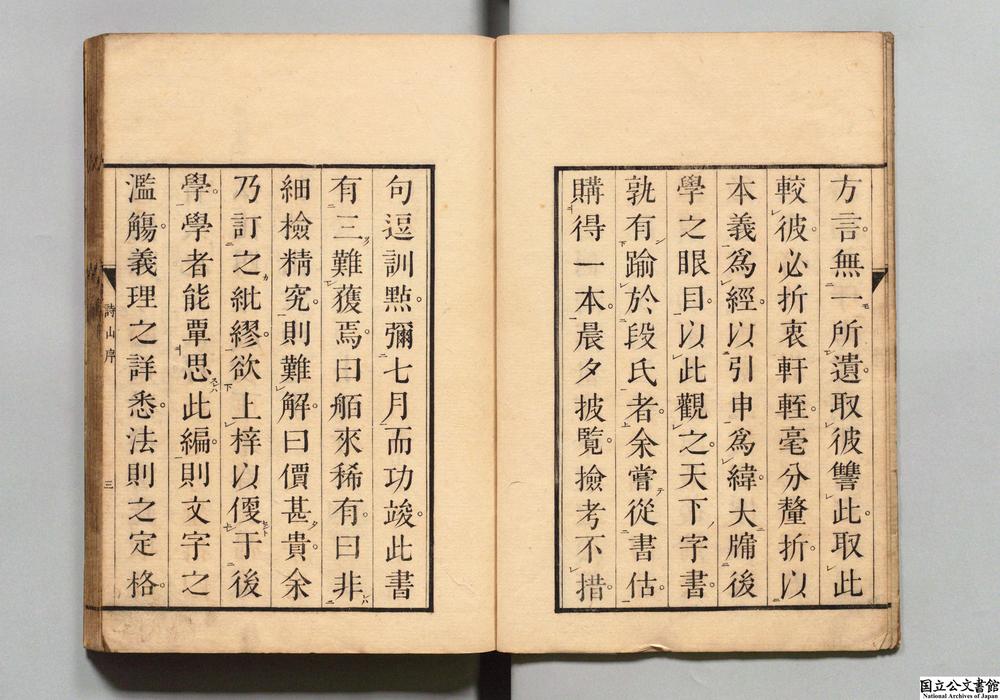 方言無一所遺取彼讐此取此
較彼必折衷軒輊毫分釐折以
本義爲經以引申爲緯大牖後
學之眼目以此觀之天下字書
孰有踰於段氏者余嘗從書估
購得一本晨夕披覧撿考不措
句逗訓點彌七月而功竣此書
有三難獲焉曰舶來稀有曰非
細檢精究則難解曰價甚貴余
乃訂之紕繆欲上梓以傻于後
學學者能覃思此編則文字之
濫觴義理之詳悉法則之定格
詩山序
三
国立公文書館
National Archives of Japan